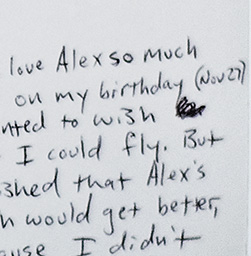 love Alex so much
on my birthday (Nov 27)
nted to wish
I could fly. But
shed that Alex's
h would get better,
ause I didn't